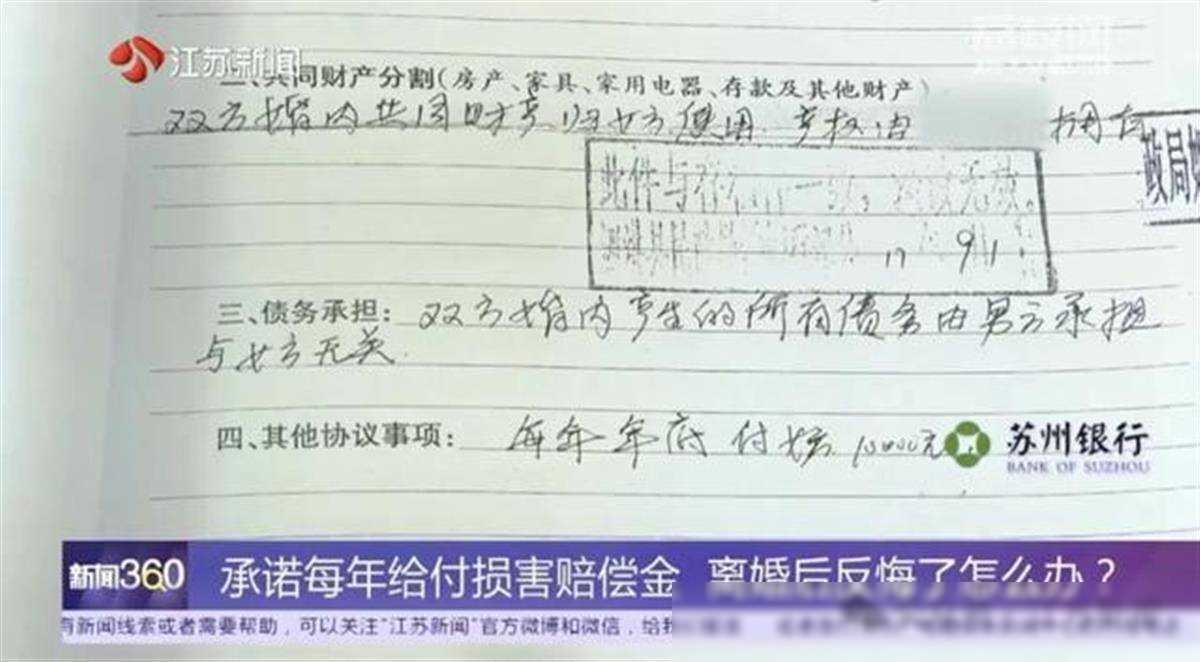 江苏新闻
二、共同财产分割(房产、家具、家用电器、存款及其他财产)
双方婚内共同财产归女方使用.产权由 拥有
政局婚
此件与存 一致,
17 91
三、债务承担: 双方婚内产生的所有债务由男方承担
与女方无关.
四、其他协议事项: 每年年底付 10000元
苏州银行
BANK OF SUZHOU
新闻360 承诺每年给付损害赔偿金 离婚后反悔了怎么办?
有新闻线索或者需要帮助,可以关注"江苏新闻"官方微博和微信,给我